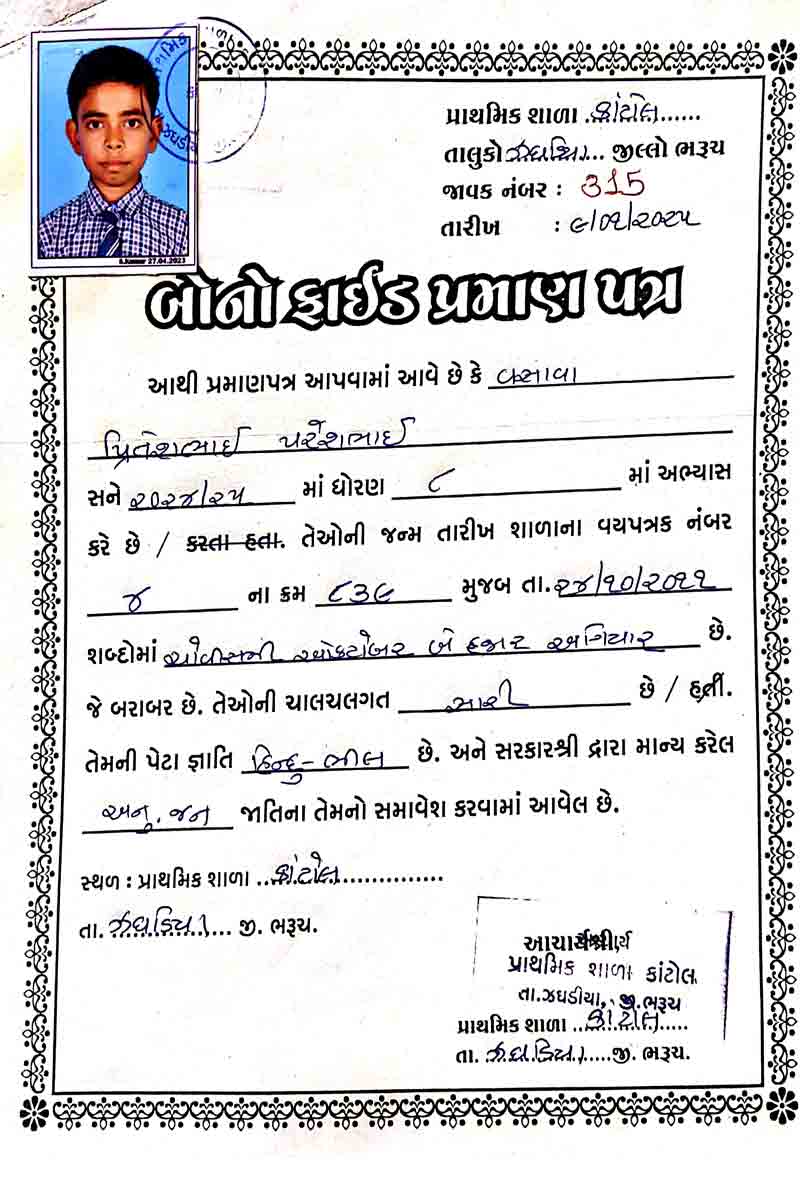 પ્રાથમિક શાળા કાંટોલ
તાલુકો ઝઘડિયા જીલ્લો ભરૂચ
જાવક નંબર : 315
તારીખ : ૯/૦૧/૨૦૨૫
S.Kumar 27.04.2023
બોનો ફાઈડ પ્રમાણ પત્ર
આથી પ્રમાણપત્ર આપવામાં આવે છે કે વસાવા
પ્રિતેશભાઈ પરેશભાઈ
સને ૨૦૨૪/૨૫ માં ધોરણ ૮ માં અભ્યાસ
કરે છે / કરતા હતા. તેઓની જન્મ તારીખ શાળાના વયપત્રક નંબર
૪ ના ક્રમ ૮૩૯ મુજબ તા. ૨૪/૧૦/૨૦૧૧
શબ્દોમાં ચોવીસમી ઓક્ટોબર બે હજાર અગિયાર છે.
જે બરાબર છે. તેઓની ચાલચલગત સારી છે / હતી.
તેમની પેટા જ્ઞાતિ હિન્દુ-ભીલ છે. અને સરકારશ્રી દ્વારા માન્ય કરેલ
અનુ. જન જાતિના તેમનો સમાવેશ કરવામાં આવેલ છે.
સ્થળ : પ્રાથમિક શાળા કાંટોલ
તા. ઝઘડિયા જી. ભરૂચ.
આચાર્યશ્રી
પ્રાથમિક શાળા કાંટોલ
તા.ઝઘડીયા, જી.ભરૂચ
પ્રાથમિક શાળા કાંટોલ
તા. ઝઘડિયા જી. ભરૂચ.